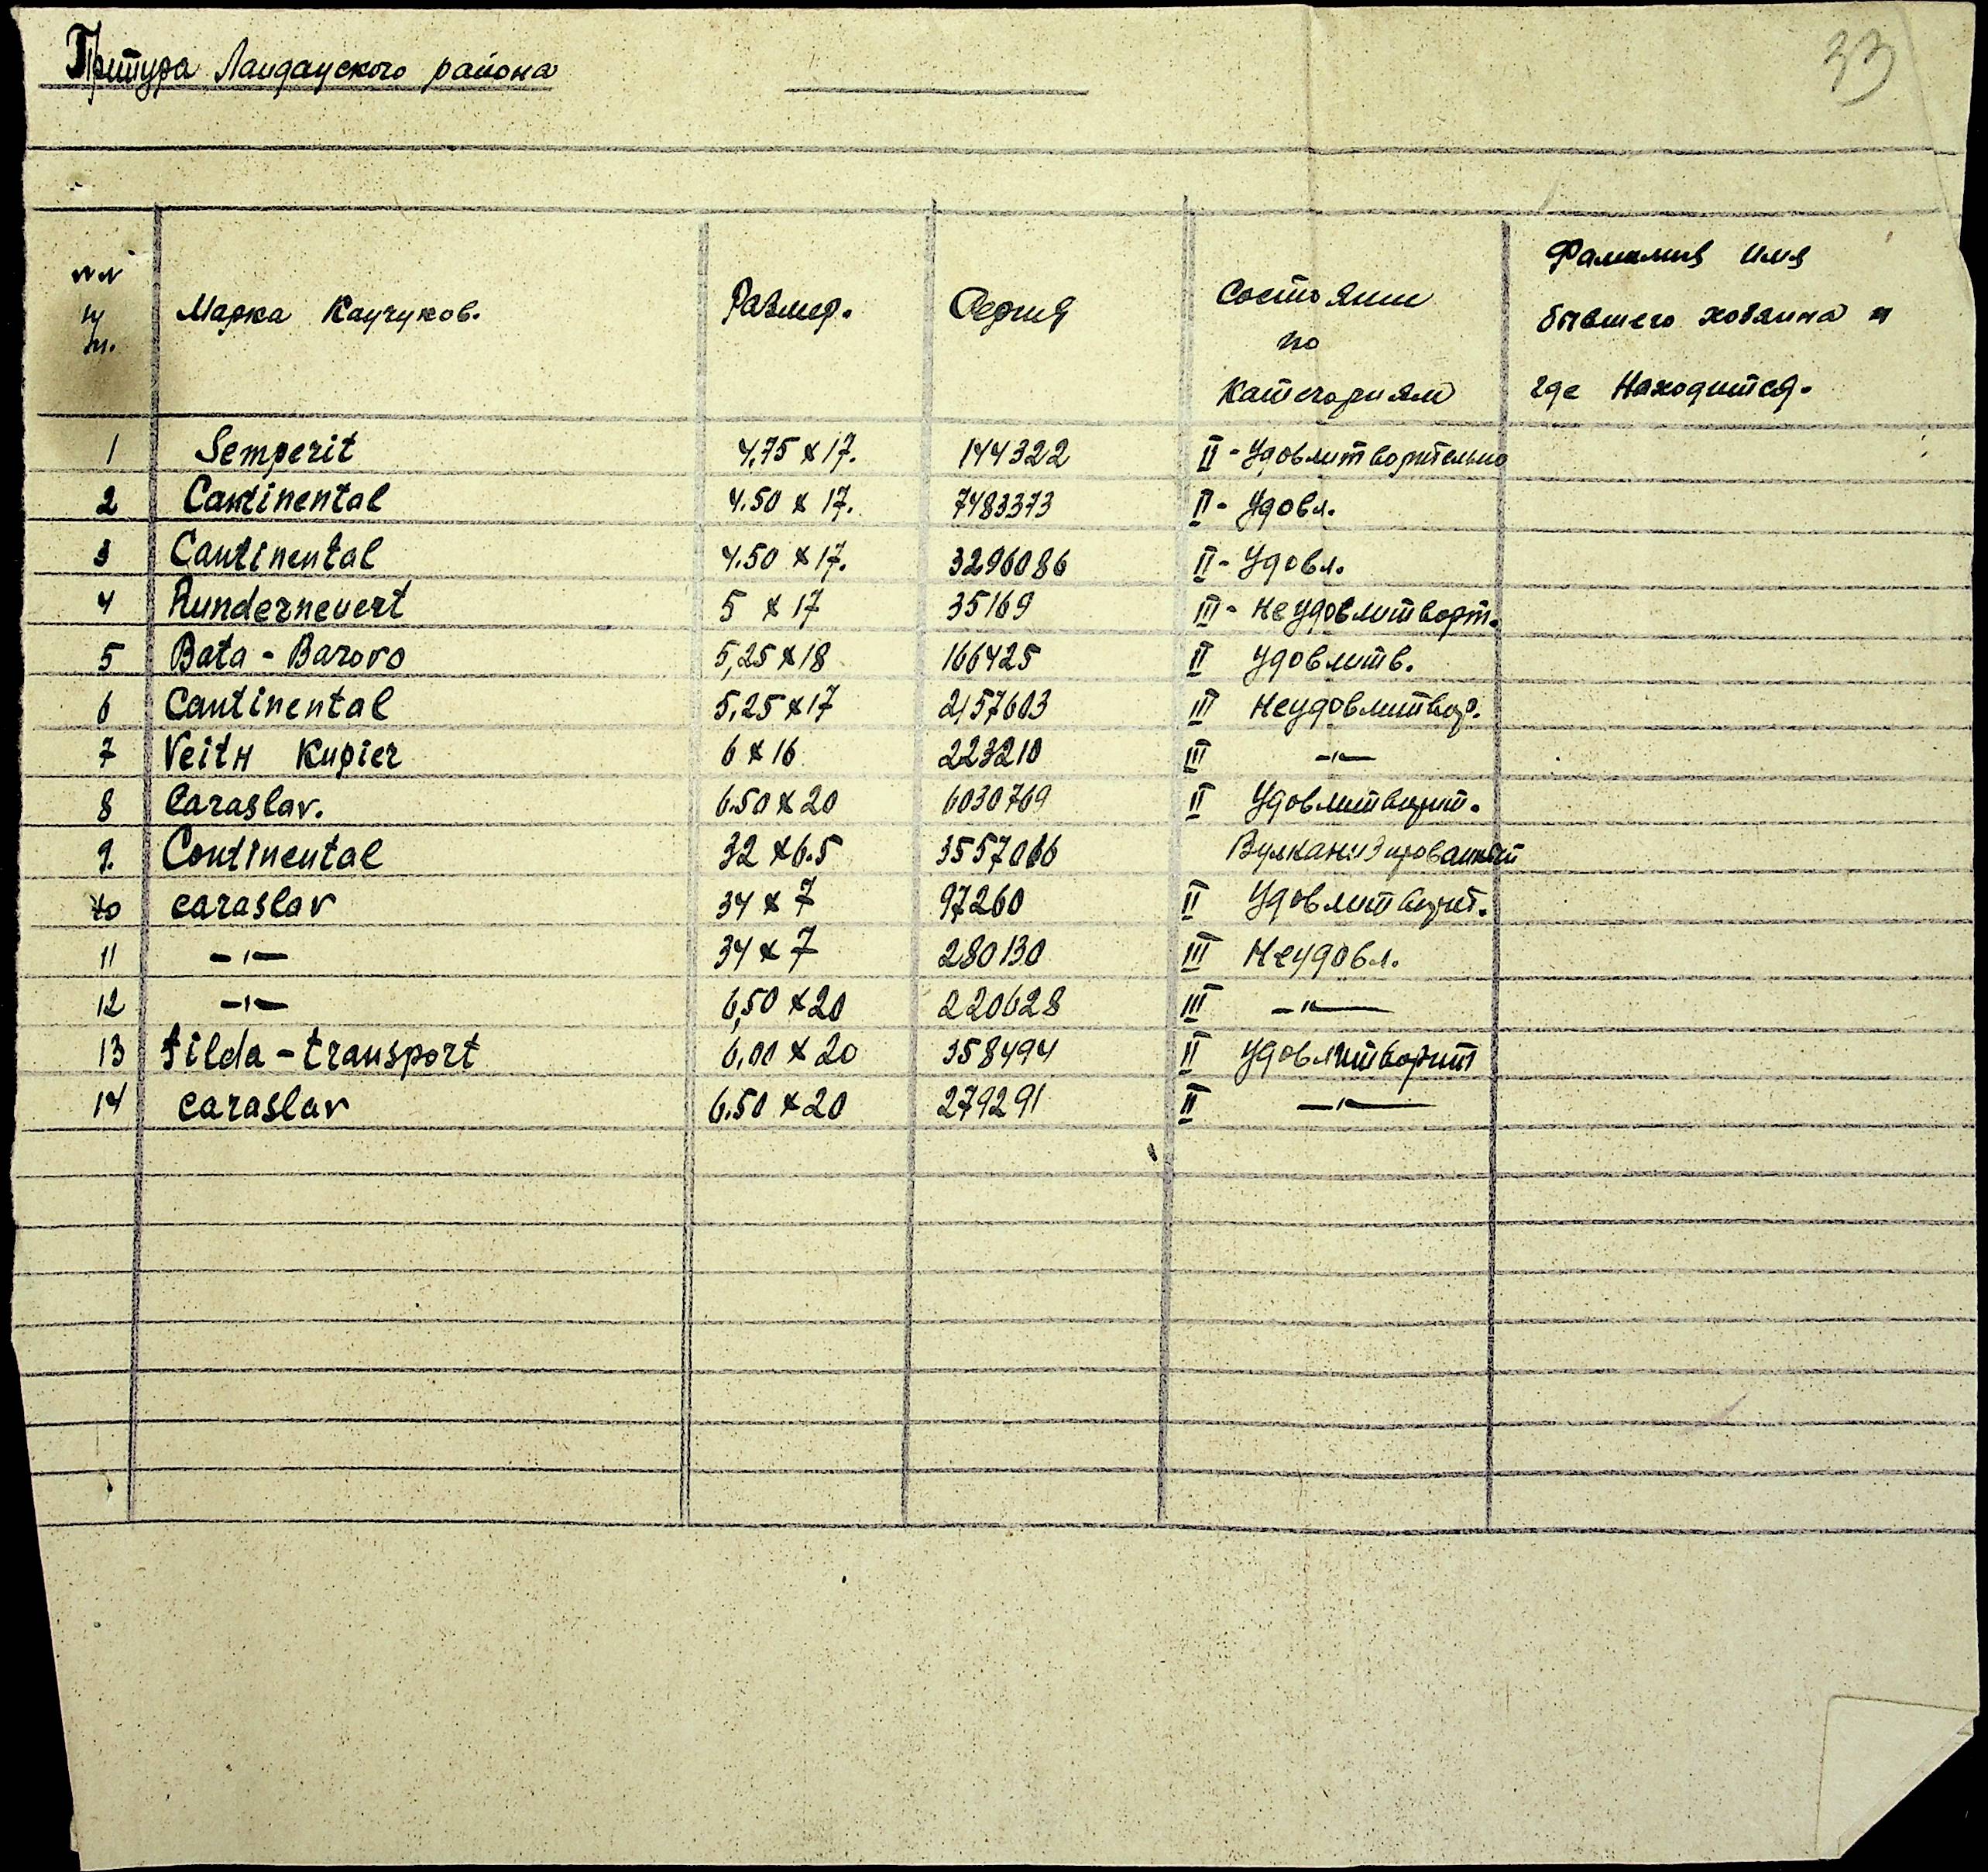 Притура Ландауского района
33
№№ п/п. Марка Каучуков. Размер. Серия Состояние по Категориям Фамилия имя бывшего хозяина и где Находится.
1 Semperit 4,75 x 17. 144322 II - Удовлитворительно
2 Cantinental 4.50 x 17. 7483373 II - Удовл.
3 Cantinental 4.50 x 17. 3296086 II - Удовл.
4 Rundernevert 5 x 17 35169 III - неудовлитворт.
5 Bata - Barovo 5,25 x 18 166425 II Удовлитв.
6 Cantinental 5,25 x 17 2157603 III Неудовлитвор.
7 Veith Kupier 6 x 16 223210 III —"—
8 Caraslav. 6.50 x 20 6030769 II Удовлитворит.
9. Continental 32 x 6.5 3557066 Вулканизированный
10 caraslav 34 x 7 97260 II Удовлитворит.
11 —"— 34 x 7 280130 III Неудовл.
12 —"— 6,50 x 20 220628 III —"—
13 tilda - transport 6,00 x 20 358494 II Удовлитворит
14 caraslav 6.50 x 20 279291 II —"—